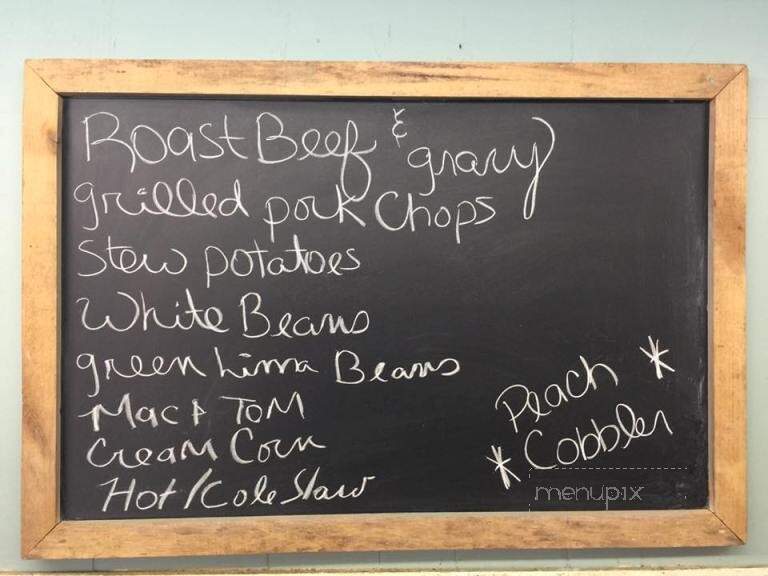 Roast Beef & gravy
grilled pork Chops
Stew potatoes
White Beans
green Lima Beans
Mac & TOM
Cream Corn
Hot/Cole Slaw
Peach *
* Cobbler
menupix